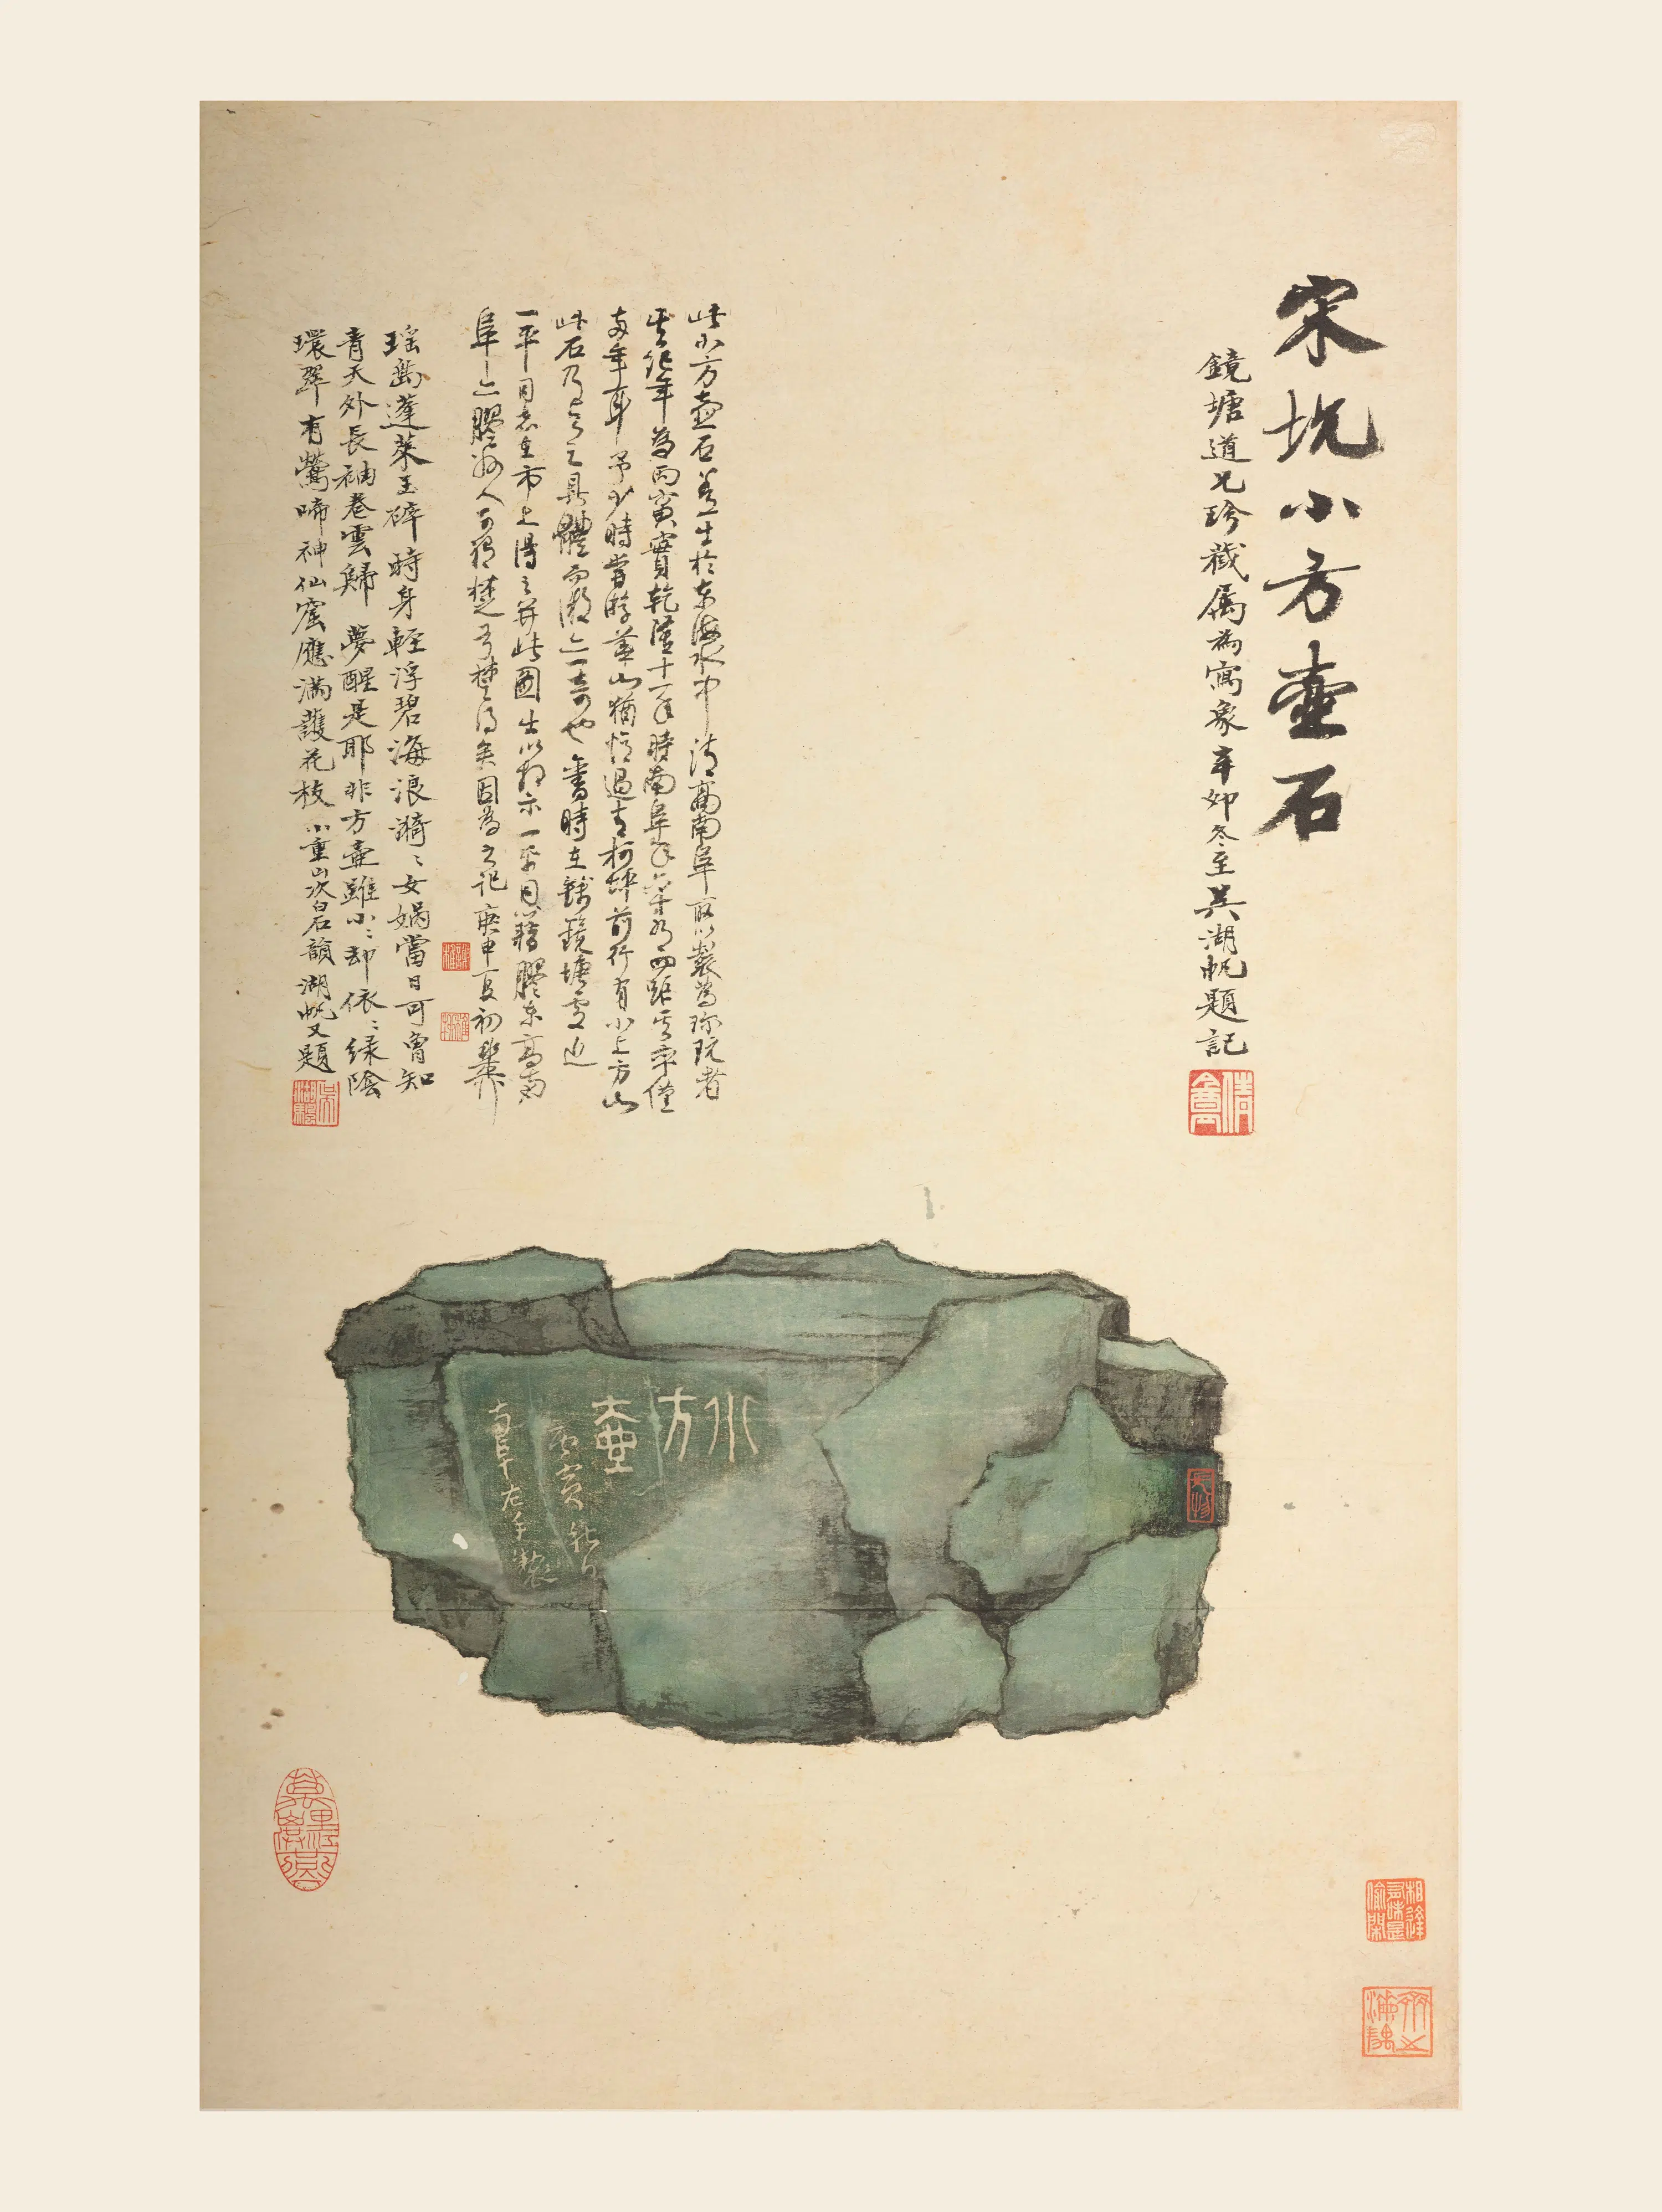 宋坑小方壺石
鏡塘道兄珍藏属為寫象辛卯冬至吳湖帆題記
此小方壺石蓋生於東海水中清高南阜取以製為珍玩者
其紀年為丙寅實乾隆十一年時南阜年六十有四距其卒僅
兩年耳予少時嘗游華山猶憶過青柯坪前行有小上方山
此石乃與之具體而微亦一奇也舊時在錢鏡塘處近
一平同志在市上得之并此圖出以相示一平同籍膠東高南
阜亦膠州人可稱楚弓楚得矣因為之記庚申夏初
瑤島蓬萊玉碎時身輕浮碧海浪漪〻女媧當日可曾知
青天外長袖卷雲歸夢醒是耶非方壺雖小〻却依〻綠陰
環翠有鶯啼神仙窟應滿護花枝小重山次白石韻湖帆又題
小方壺
南阜左手製